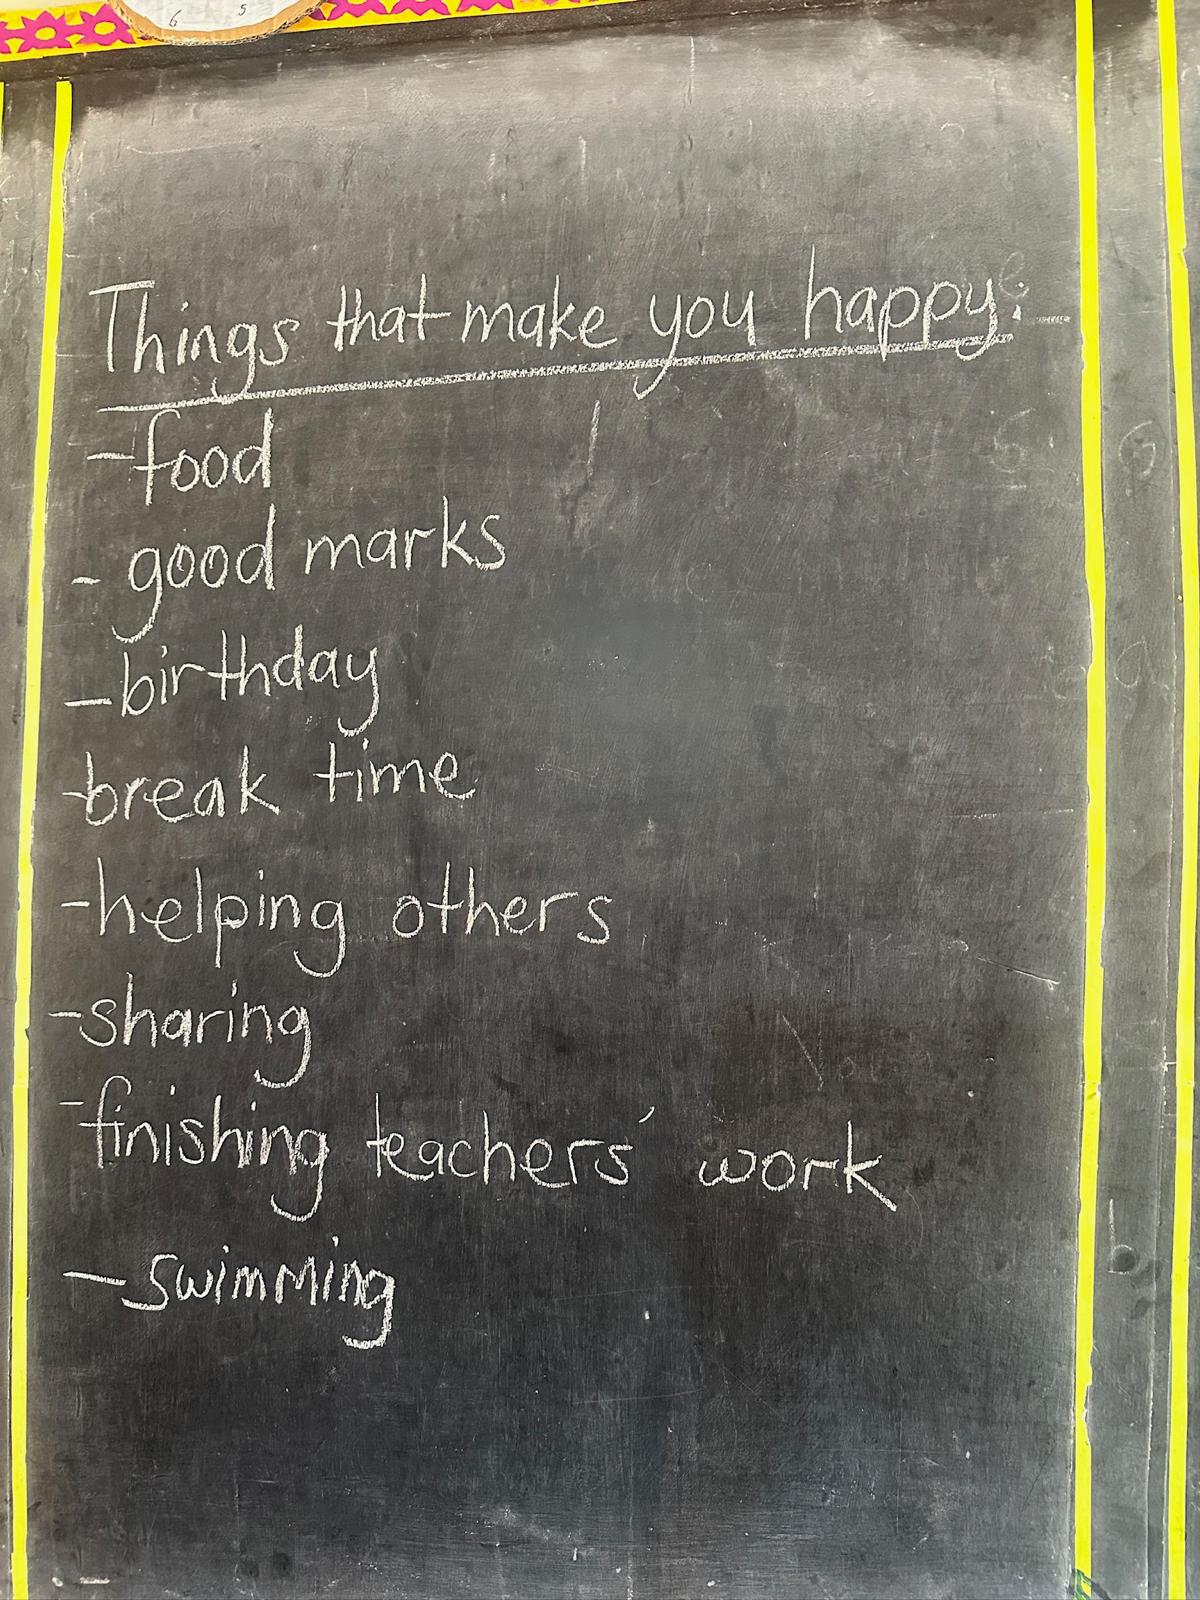 6 5
Things that make you happy:
- food
- good marks
- birthday
- break time
- helping others
- sharing
- finishing teachers' work
- swimming